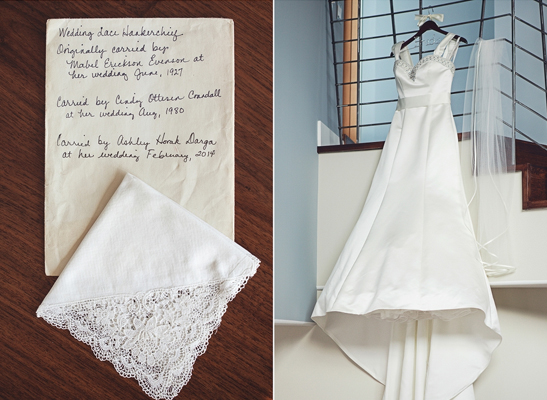 Wedding Lace Hankerchief
Originally carried by
Mabel Erickson Evenson at
her wedding June, 1927
Carried by Cindy Ottesen Crandall
at her wedding Aug, 1980
Carried by Ashley Horak Darga
at her wedding February, 2014